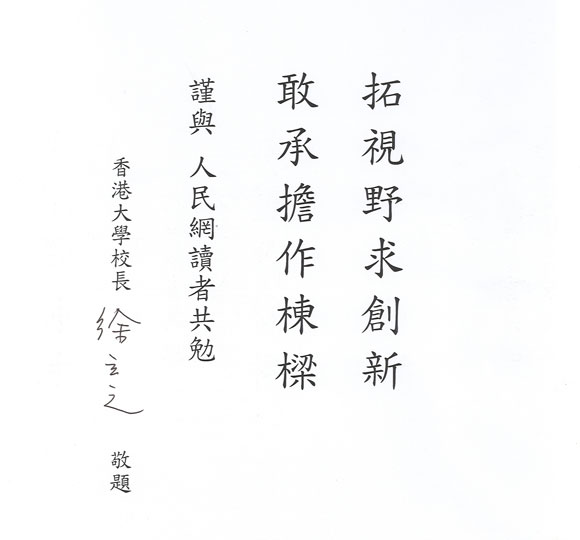 拓視野求創新
敢承擔作棟樑
謹與 人民網讀者共勉
香港大學校長 徐立之 敬題